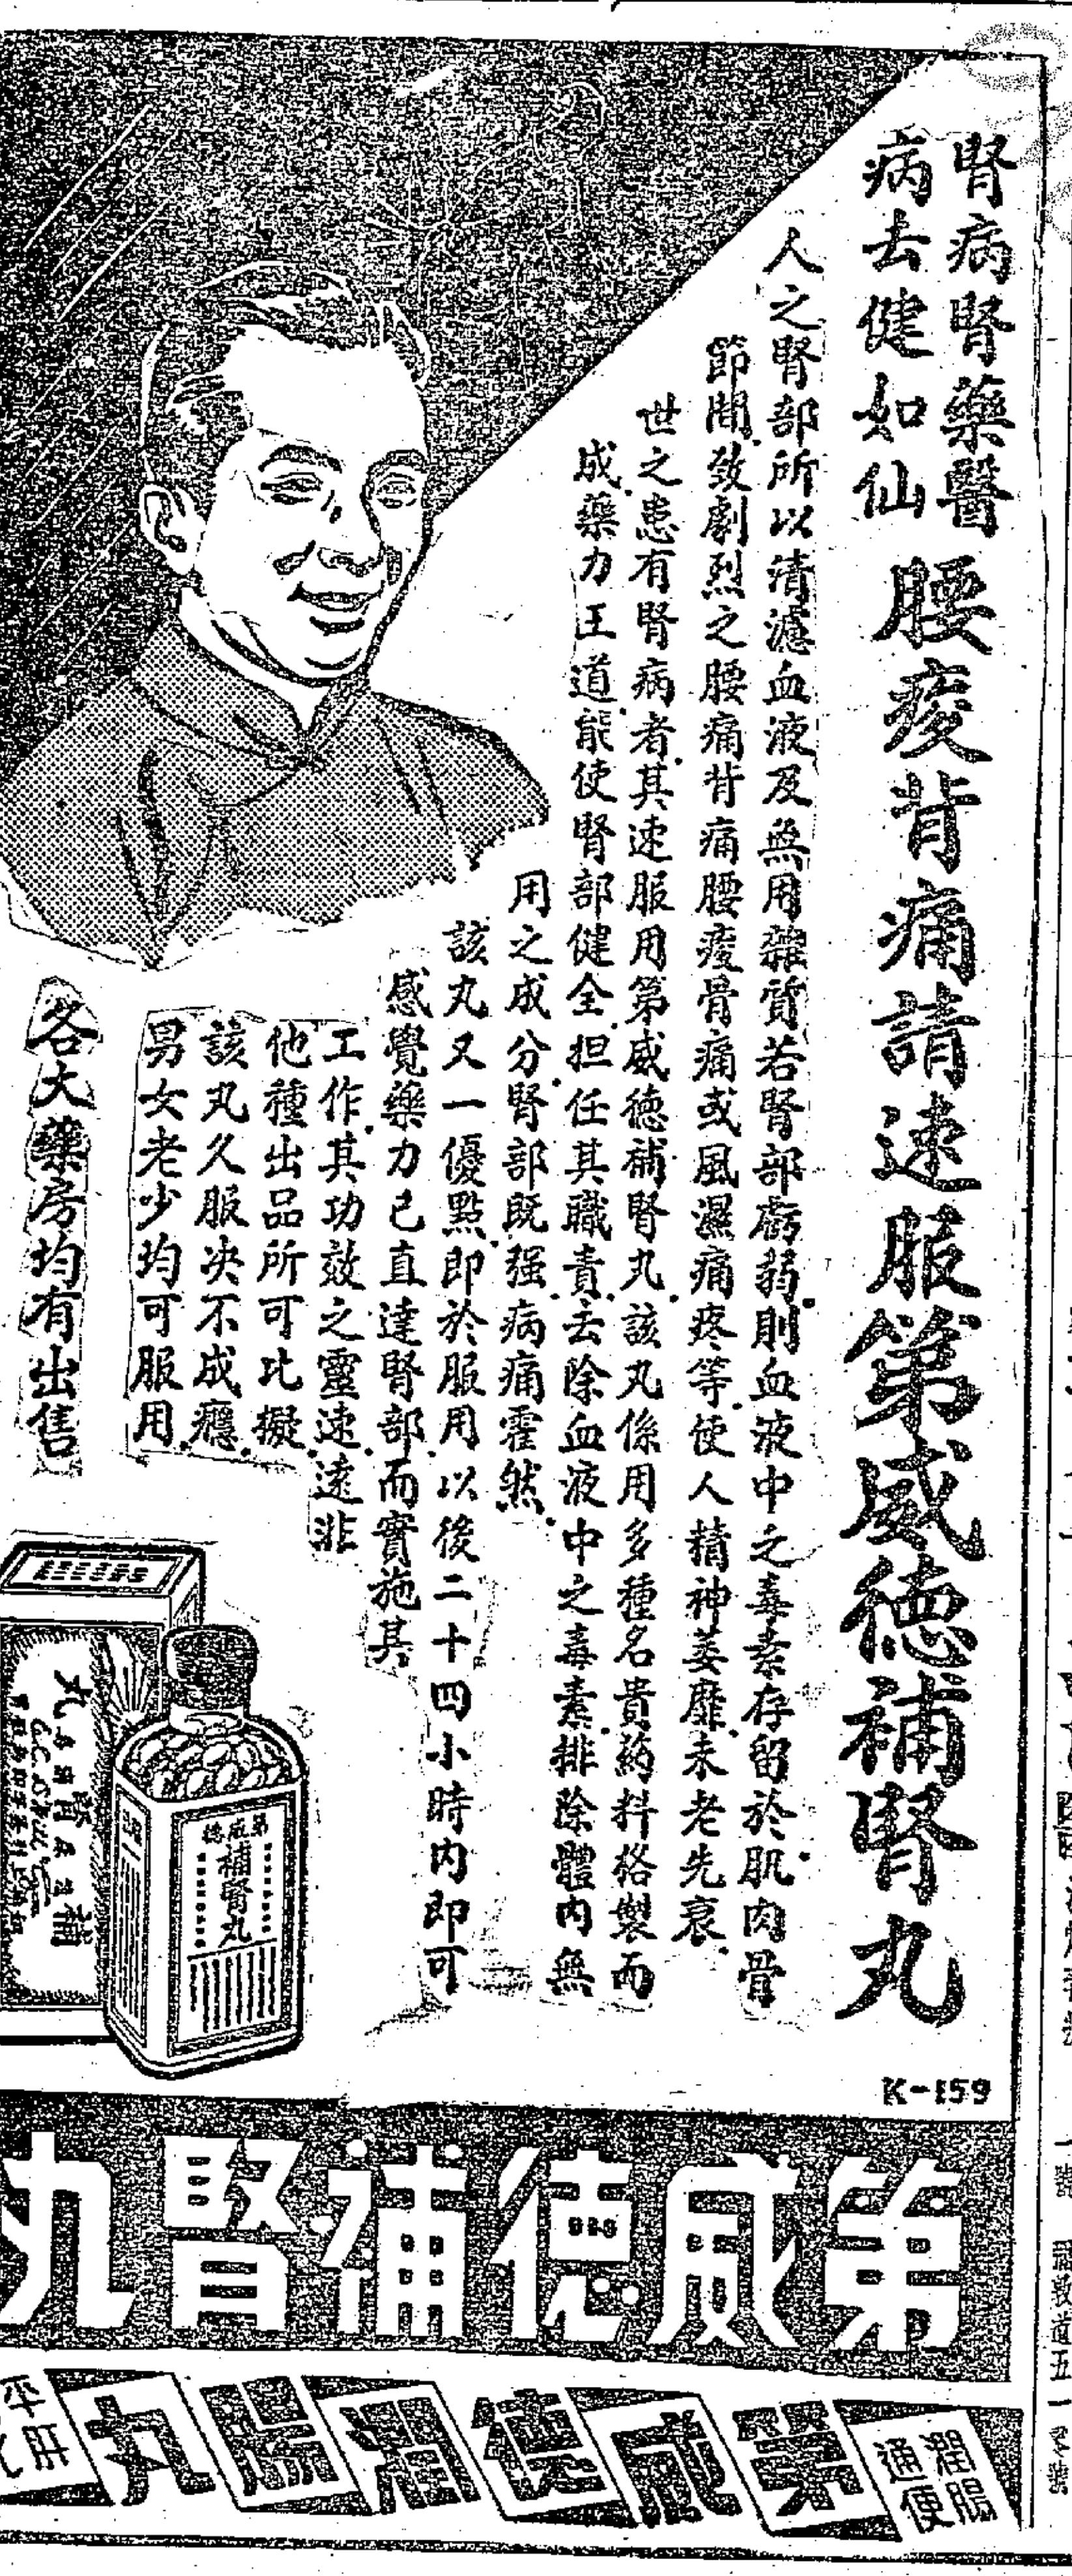 腎病腎藥醫
病去健如仙
腰痠背痛請速服第威德補腎丸
人之腎部所以清濾血液及無用雜質若腎部虧弱則血液中之毒素存留於肌肉骨
節間致劇烈之腰痛背痛腰痠骨痛或風濕痛疼等使人精神萎靡未老先衰
世之患有腎病者其速服用第威德補腎丸該丸係用多種名貴葯料格製而
成藥力王道能使腎部健全担任其職責去除血液中之毒素排除體內無
用之成分腎部既强病痛霍然
該丸又一優點即於服用以後二十四小時內即可
感覺藥力已直達腎部而實施其
工作其功效之靈速遠非
他種出品所可比擬
該丸久服决不成癮
男女老少均可服用
各大藥房均有出售
第威德
補腎丸
K-159
第威德補腎丸
潤腸
通便
第威德潤腸丸